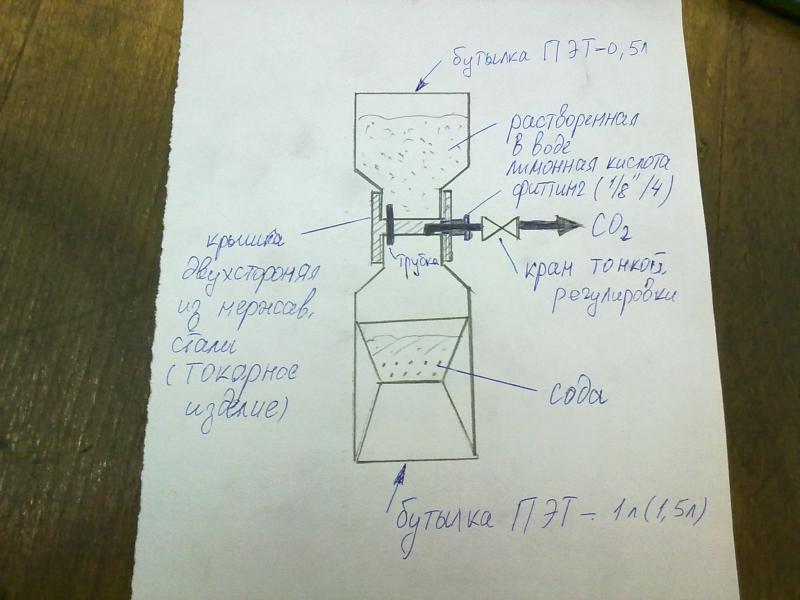 бутылка ПЭТ-0,5л
растворенная
в воде
лимонная кислота
фитинг (1/8"/4)
CO2
кран тонкой
регулировки
трубка
крышка
двухстороняя
из нержав.
стали
(токарное
изделие)
сода
бутылка ПЭТ - 1л (1,5л)